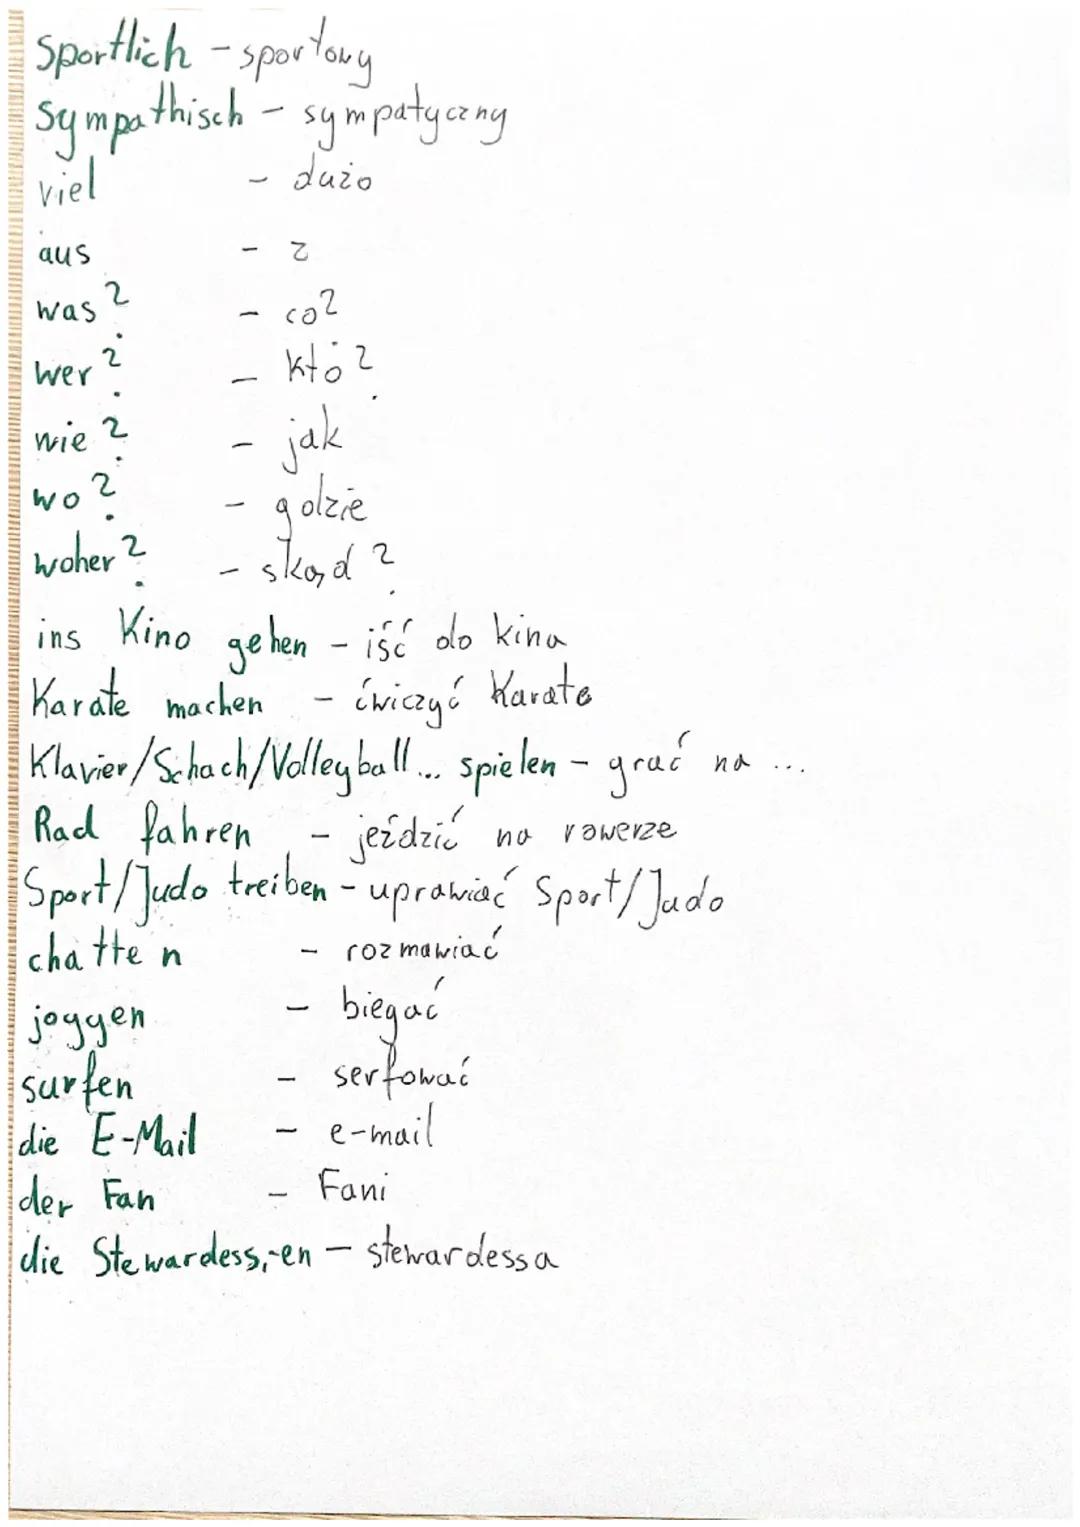 Sportlich - sportowy
Sympathisch - sympatyczny
viel - dużo
aus - z
was? - co?
wer? - kto?
wie? - jak
wo? - gdzie
woher? - skąd?
ins Kino gehen - iść do kina
Karate machen - ćwiczyć Karate
Klavier/Schach/Volleyball... spielen - grać na ...
Rad fahren - jeździć na rowerze
Sport/Judo treiben - uprawiać Sport/Judo
chatten - rozmawiać
joggen - biegać
surfen - serfować
die E-Mail - e-mail
der Fan - Fani
die Stewardess,-en - stewardessa